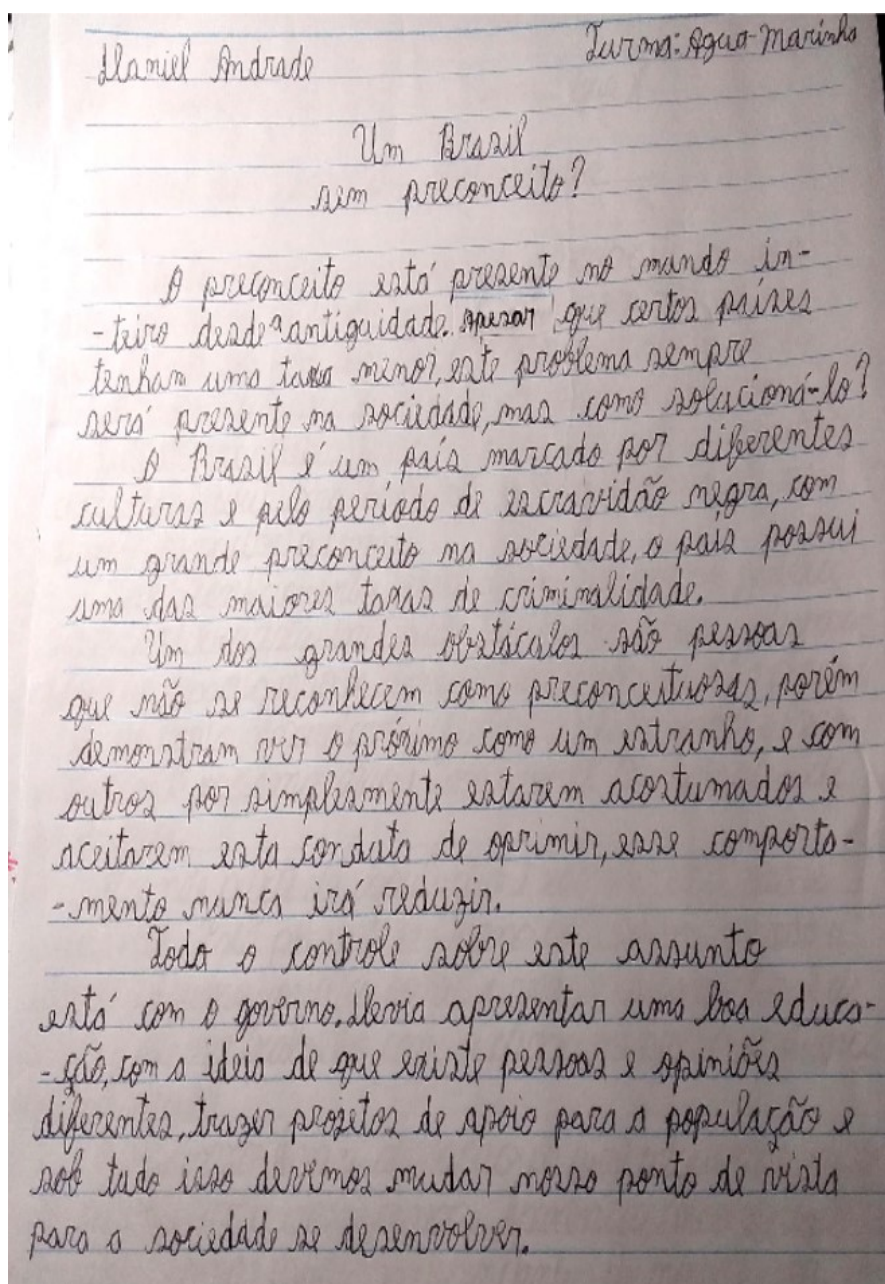 Daniel Andrade
Turma: Água-Marinha
Um Brasil
sem preconceito?
O preconceito está presente no mundo in-
-teiro desde a antiguidade. Apesar que certos países
tenham uma taxa menor, este problema sempre
será presente na sociedade, mas como solucioná-lo?
O Brasil é um país marcado por diferentes
culturas e pelo período de escravidão negra, com
um grande preconceito na sociedade, o país possui
uma das maiores taxas de criminalidade.
Um dos grandes obstáculos são pessoas
que não se reconhecem como preconceituosas, porém
demonstram ver o próximo como um estranho, e com
outros por simplesmente estarem acostumados e
aceitarem esta conduta de oprimir, esse comporta-
-mento nunca irá reduzir.
Todo o controle sobre este assunto
está com o governo. Devia apresentar uma boa educa-
-ção, com a ideia de que existe pessoas e opiniões
diferentes, trazer projetos de apoio para a população e
sob tudo isso devemos mudar nosso ponto de vista
para a sociedade se desenvolver.